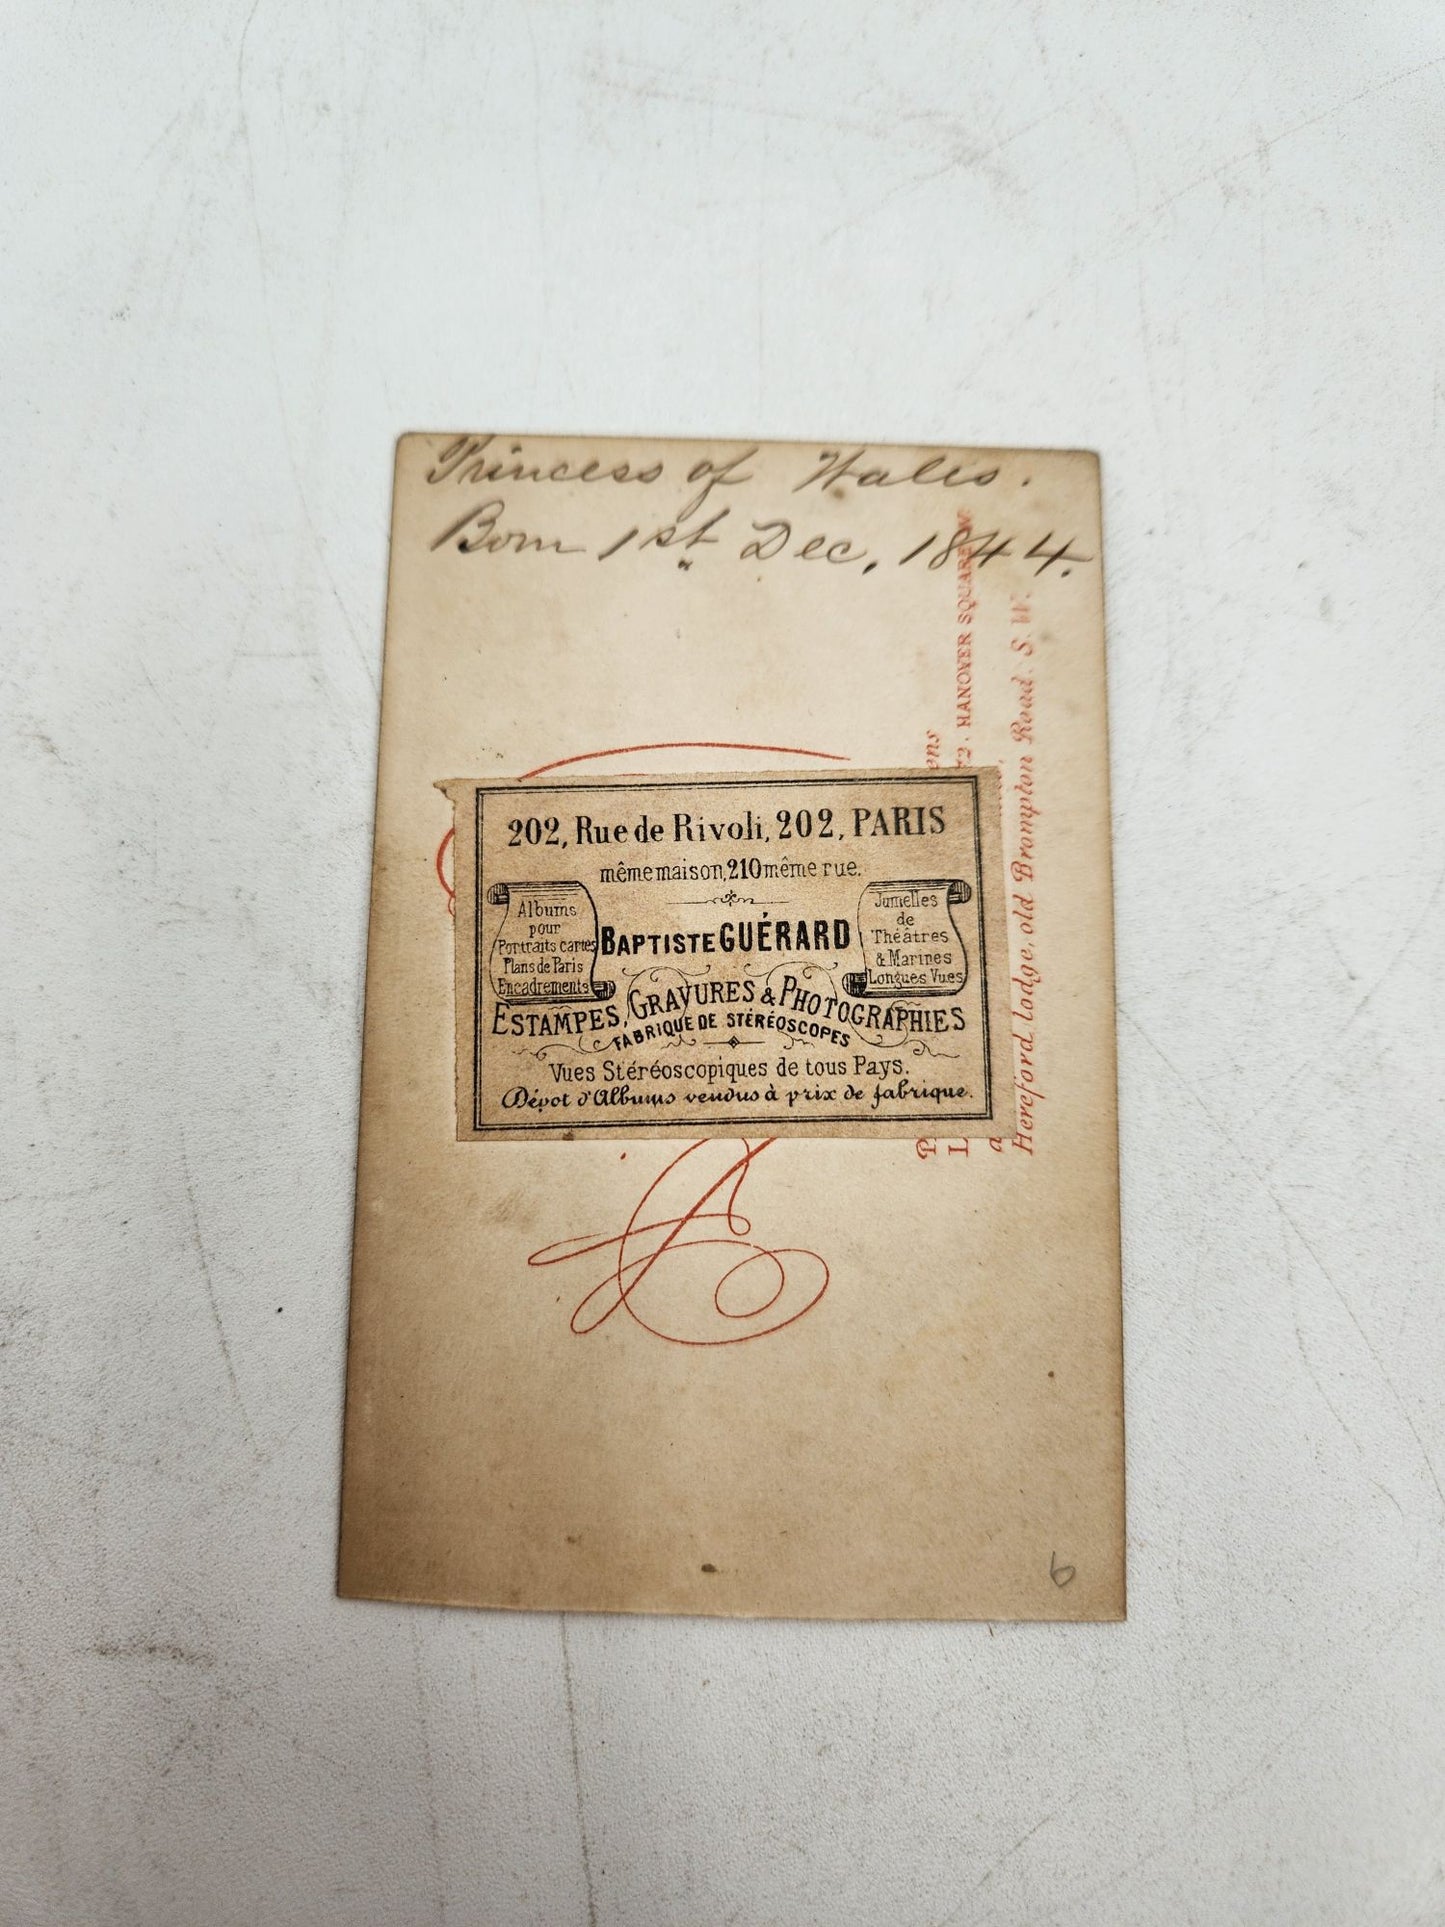 Princess of Wales.
Born 1st Dec, 1844.
202, Rue de Rivoli, 202, PARIS
même maison, 210 même rue.
Albums
pour
Portraits cartes
Plans de Paris
Encadrements
BAPTISTE GUÉRARD
Jumelles
de
Théâtres
& Marines
Longues Vues
ESTAMPES, GRAVURES & PHOTOGRAPHIES
FABRIQUE DE STÉRÉOSCOPES
Vues Stéréoscopiques de tous Pays.
Dépot d'Albums vendus à prix de fabrique.
72. HANOVER SQUARE W
Hereford lodge, old Brompton Road. S. W.
6